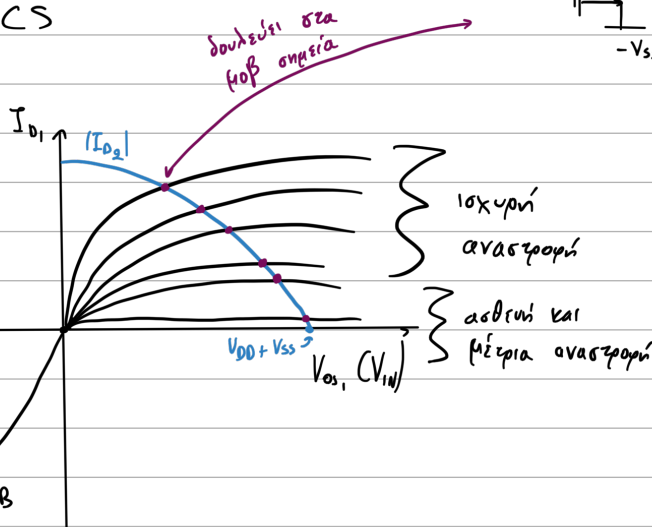 CS
-Vs
δουλεύει στα
μοβ σημεία
I_D1
|I_D2|
ισχυρή
αναστροφή
ασθενή και
μέτρια αναστροφή
V_DD + V_SS
V_DS1 (V_IN)
B